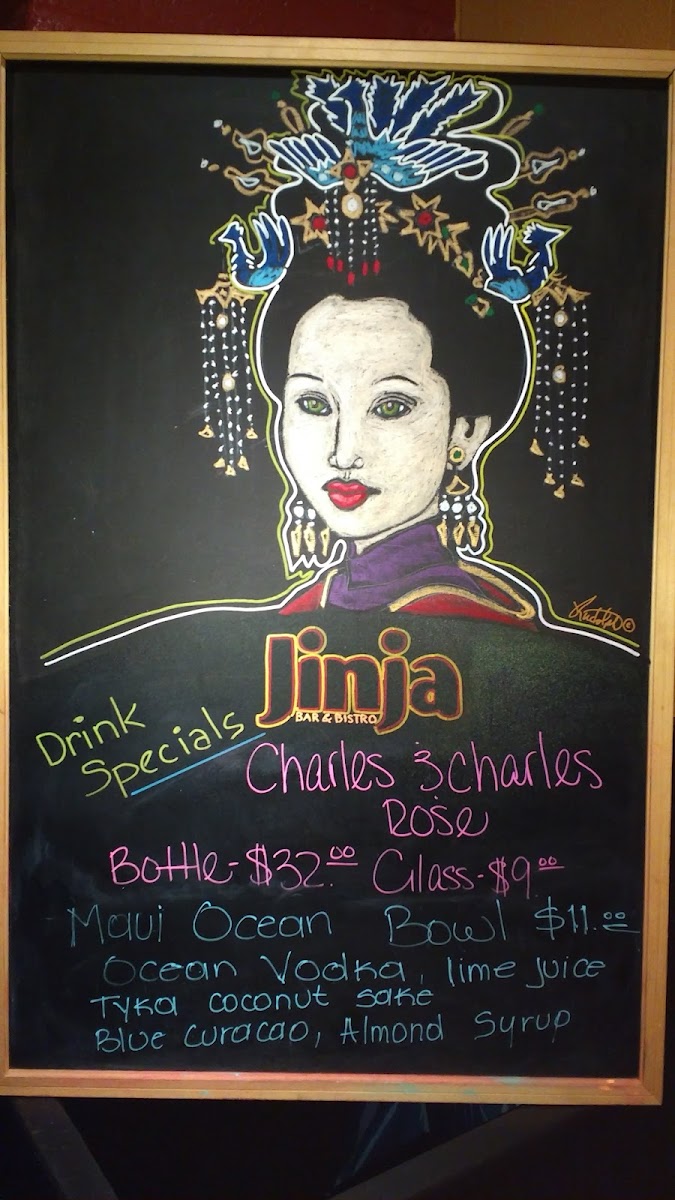 Jinja
BAR & BISTRO
Drink
Specials
Charles & Charles
Rose
Bottle-$32.00 Glass-$9.00
Maui Ocean Bowl $11.00
Ocean Vodka, lime juice
Tyka coconut sake
Blue curacao, Almond Syrup